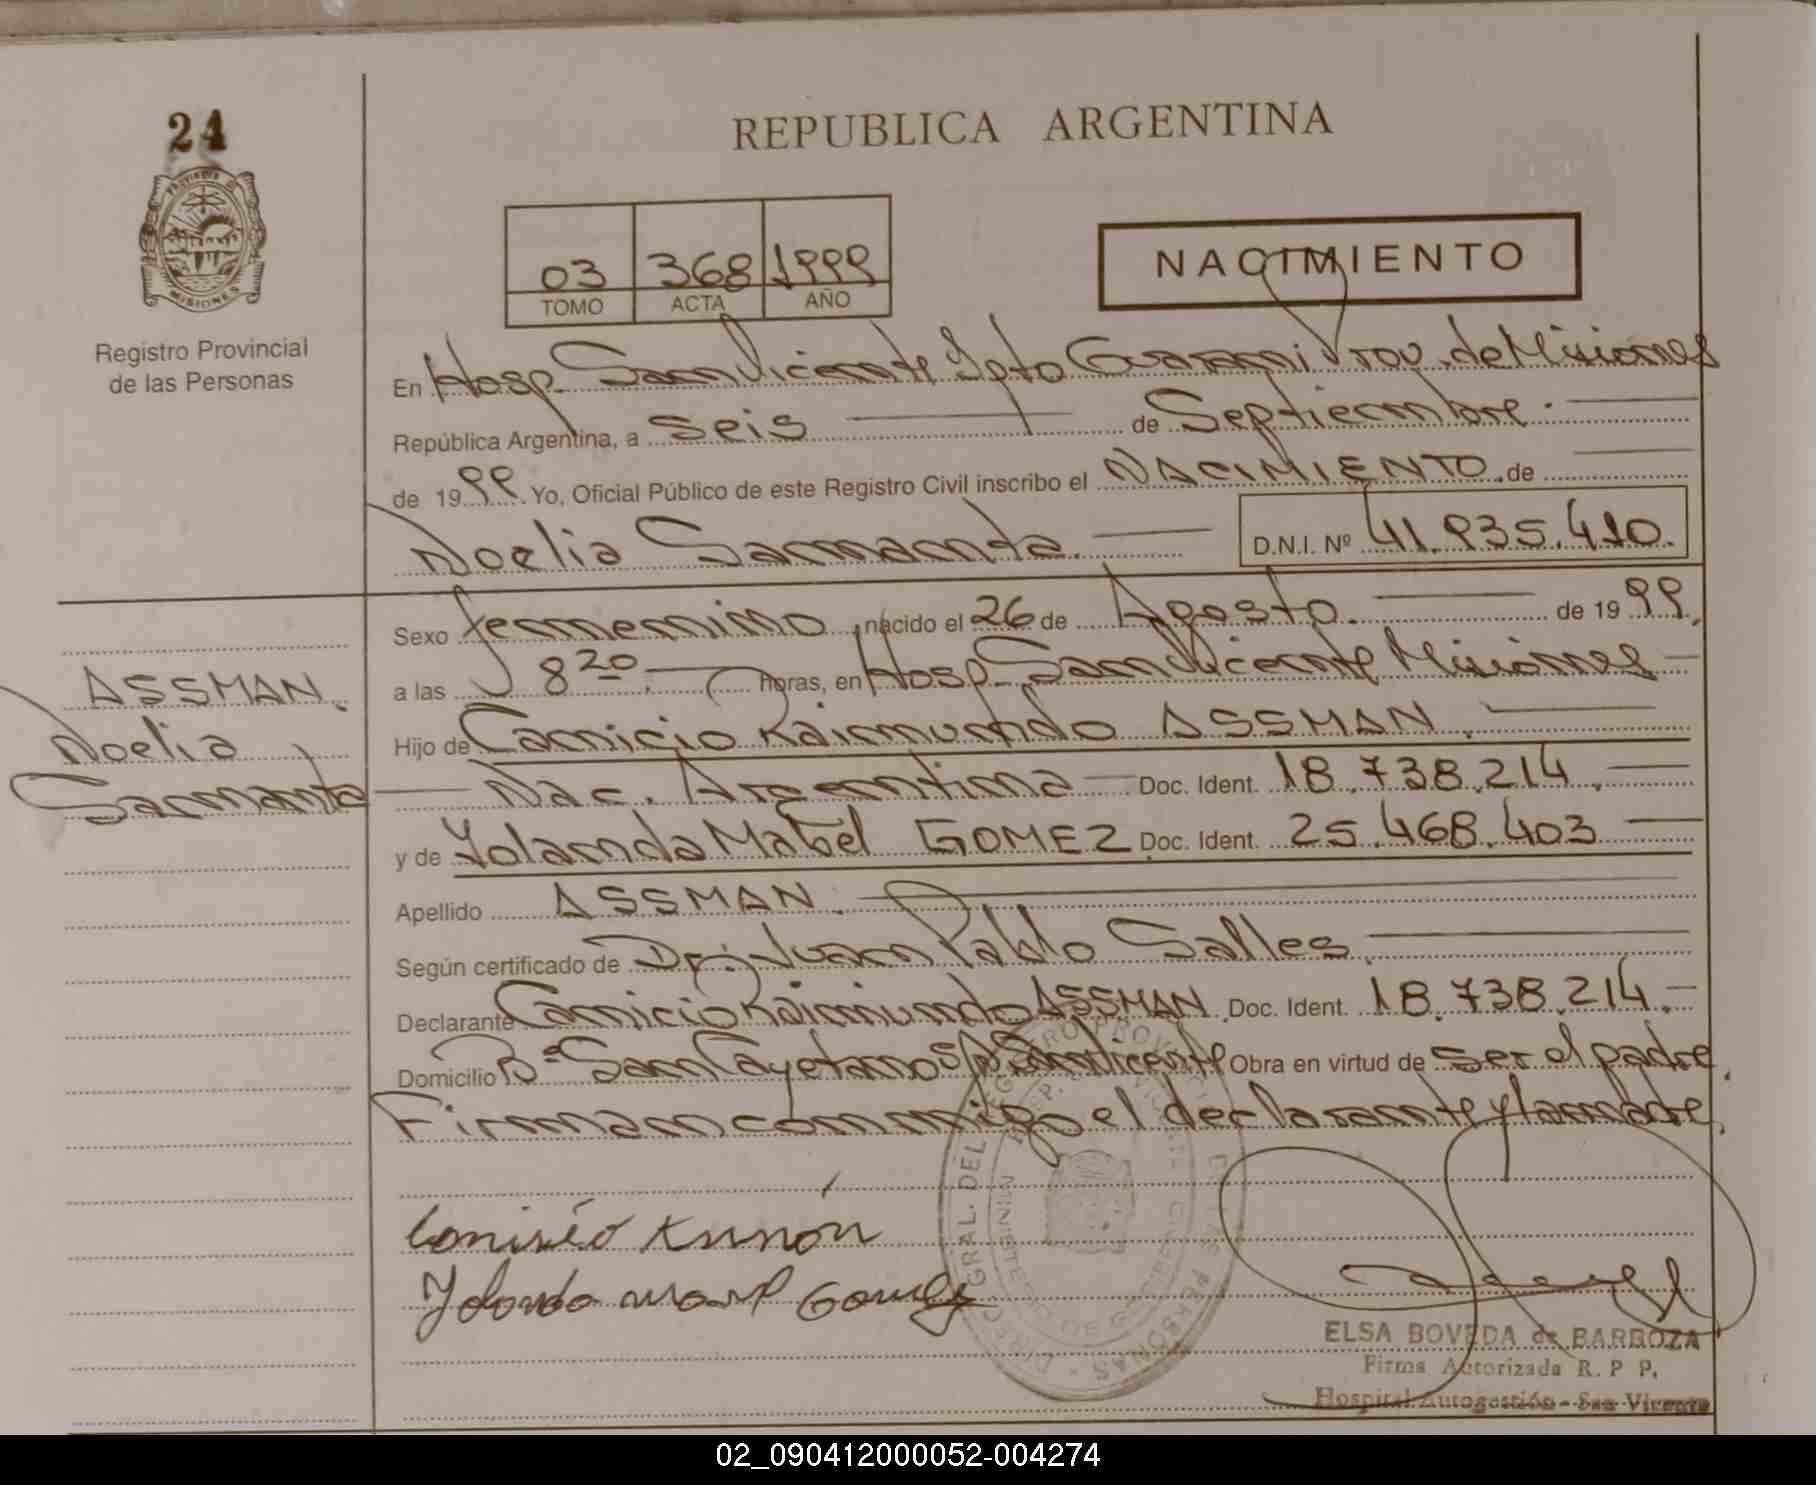 24
PROVINCIA DE
MISIONES
Registro Provincial
de las Personas
REPUBLICA ARGENTINA
03 368 1999
TOMO ACTA AÑO
NACIMIENTO
En Hosp San Vicente Dpto Guarani Prov. de Misiones
República Argentina, a Seis de Septiembre.
de 1999. Yo, Oficial Público de este Registro Civil inscribo el NACIMIENTO de
Noelia Samanta. D.N.I. Nº 41.935.410.
Sexo femenino nacido el 26 de Agosto. de 1999.
a las 8 20 horas, en Hosp San Vicente Misiones
Hijo de Canicio Raimundo ASSMAN.
Nac. Argentina Doc. Ident. 18.738.214.
y de Yolanda Mabel GOMEZ Doc. Ident. 25.468.403
Apellido ASSMAN.
Según certificado de Dr: Juan Pablo Salles.
Declarante Canicio Raimundo ASSMAN. Doc. Ident. 18.738.214.
Domicilio Bº San Cayetano San Vicente Obra en virtud de ser el padre.
Firman conmigo el declarante y la madre.
ASSMAN.
Noelia
Samanta
Yolanda Gomez
DIREC. GRAL. DEL REGISTRO PROV. DE LAS PERSONAS
MINISTERIO DE GOBIERNO
ELSA BOVEDA de BARBOZA
Firma Autorizada R. P P.
Hospital Autogestión - San Vicente
02_090412000052-004274